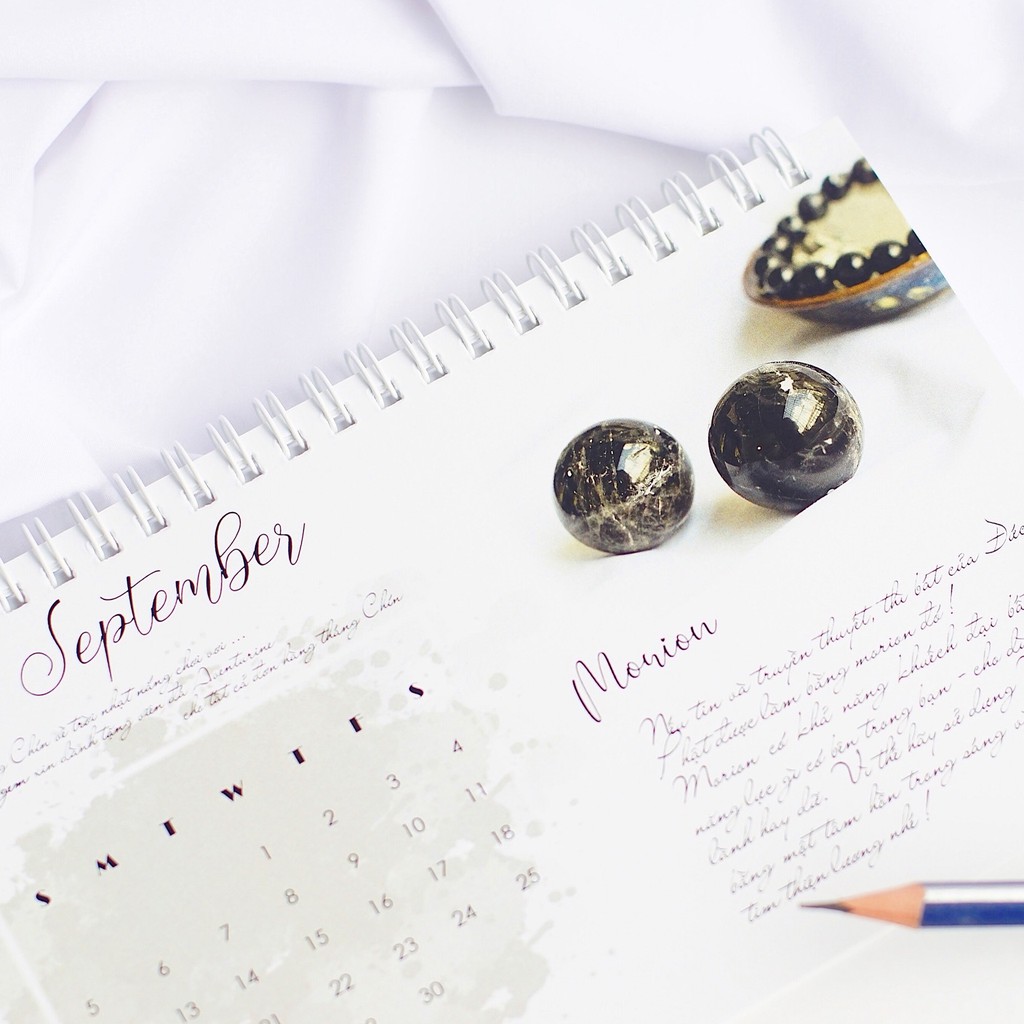 September
Chín và trời nhật nắng chơi vơi ...
xem xin dành tặng viên đá Aventurine
cho tất cả đơn hàng tháng Chín
S M T W T F S
1 2 3 4
5 6 7 8 9 10 11
13 14 15 16 17 18
21 22 23 24 25
30
Morion
Nếu tin vào truyền thuyết, thì bát của Đức
Phật được làm bằng morion đó!
Morion có khả năng khuếch đại
năng lực gì có bên trong bạn - cho dù
lành hay dữ. Vì thế hãy sử dụng
bằng một tâm hồn trong sáng
tim thiện lương nhé!